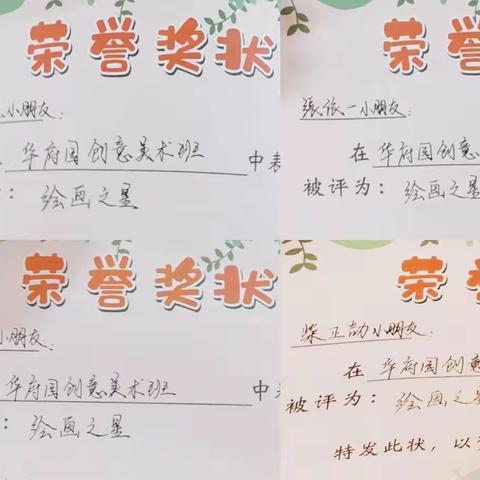 荣誉奖状
小朋友:
华府园创意美术班 中表
: 绘画之星
荣
張依一小朋友:
在 华府园创意
被评为: 绘画之星
荣誉奖状
小朋友:
华府园创意美术班 中
: 绘画之星
荣
柴正劼小朋友:
在 华府园创意
被评为: 绘画之星
特发此状,以